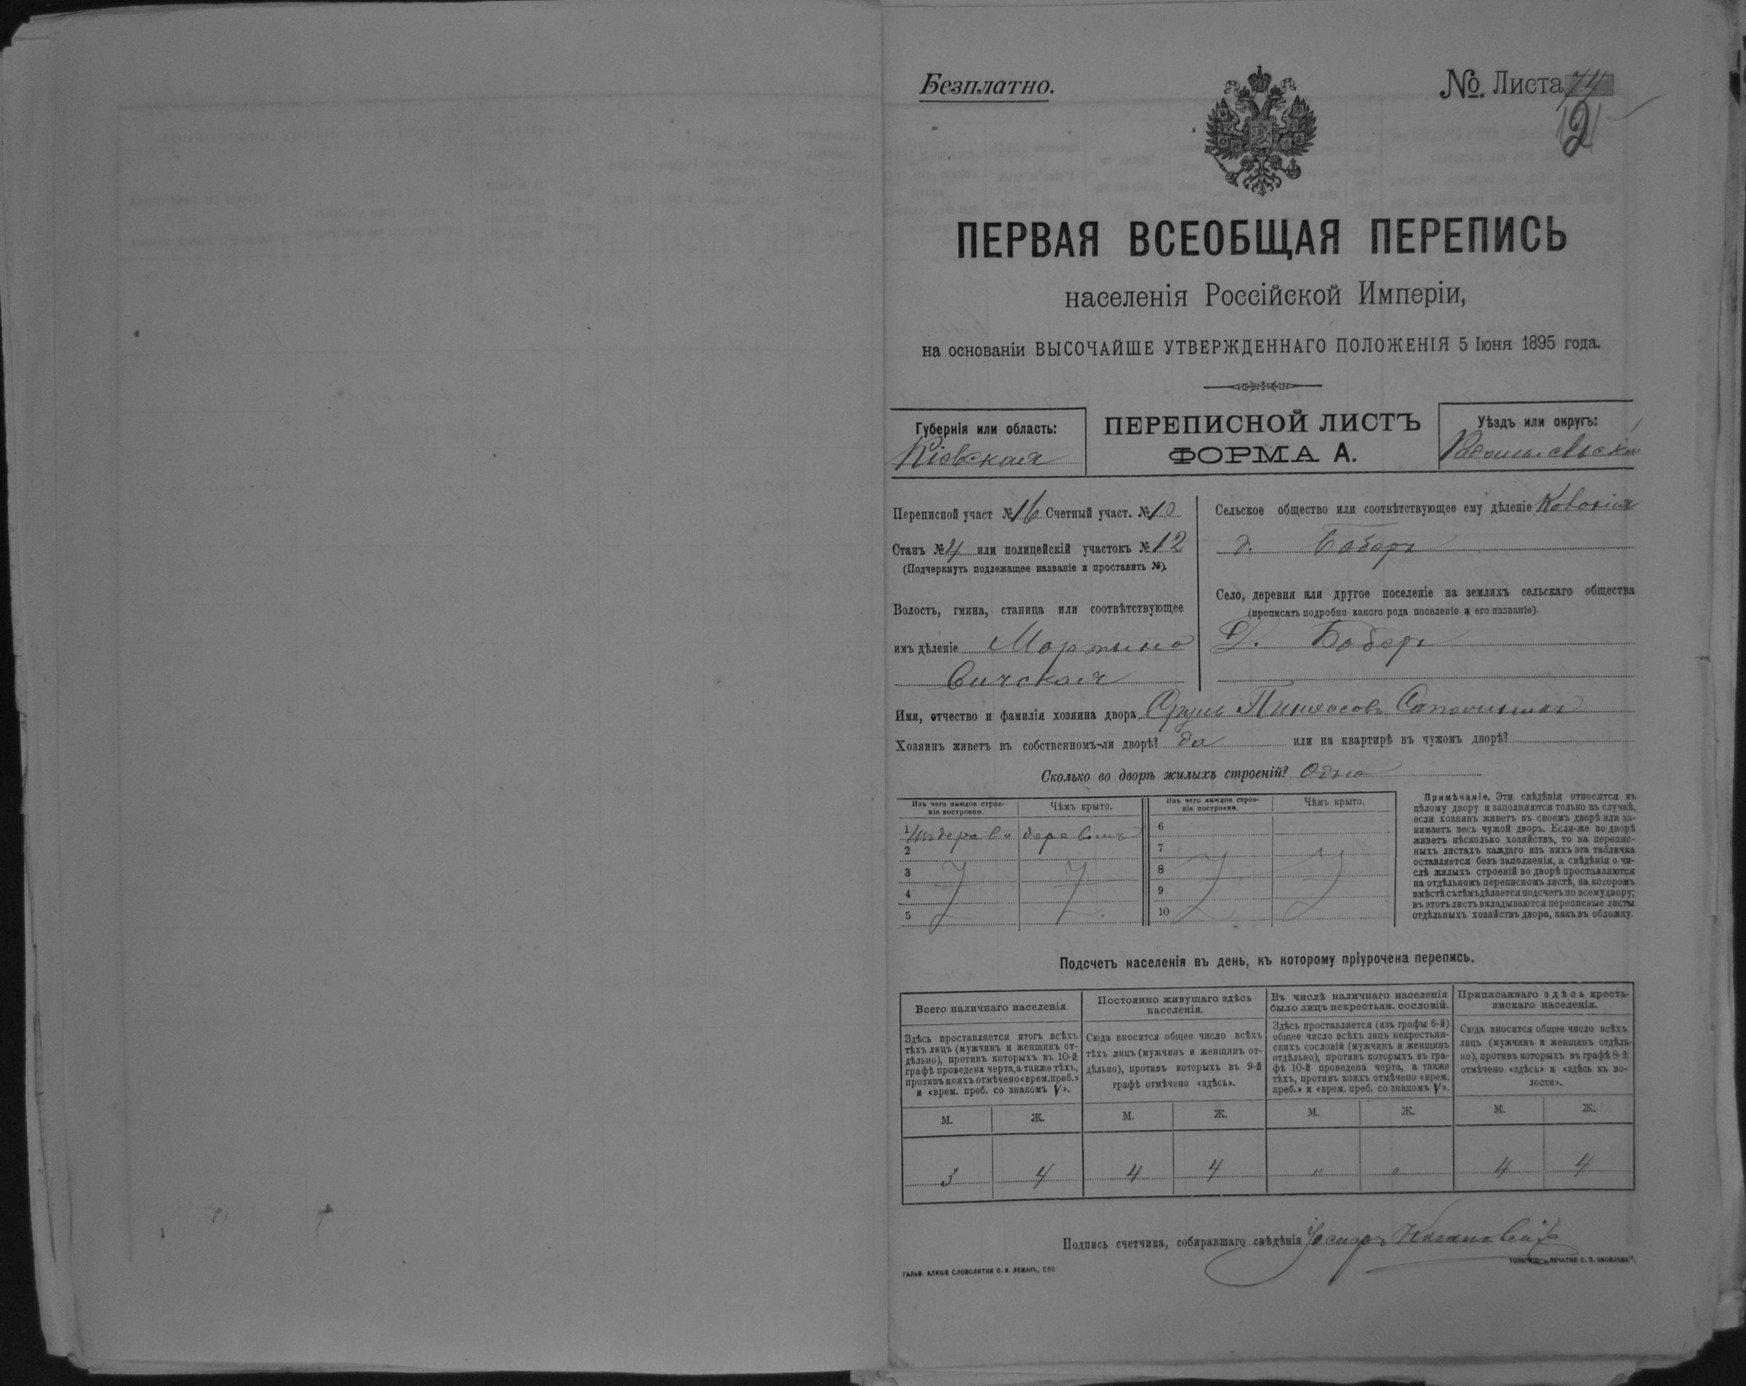 Безплатно.
№. Листа 74
12
ПЕРВАЯ ВСЕОБЩАЯ ПЕРЕПИСЬ
населенія Россійской Имперіи,
на основаніи ВЫСОЧАЙШЕ УТВЕРЖДЕННАГО ПОЛОЖЕНІЯ 5 Іюня 1895 года.
Губернія или область:
Кіевская
ПЕРЕПИСНОЙ ЛИСТЪ
ФОРМА А.
Уѣздъ или округъ:
Радомысльскій
Переписной участ №16 Счетный участ. №10
Станъ №4 или полицейскій участокъ №12
(Подчеркнуть подлежащее названіе и проставить №).
Волость, гмина, станица или соотвѣтствующее
имъ дѣленіе Мартыно
вичская
Сельское общество или соотвѣтствующее ему дѣленіе Колонія
д. Боберъ
Село, деревня или другое поселеніе на земляхъ сельскаго общества
(прописать подробно какого рода поселеніе и его названіе).
Д. Боберъ
Имя, отчество и фамилія хозяина двора Сруль Пинхасовъ
Хозяинъ живетъ въ собственномъ-ли дворѣ? да или на квартирѣ въ чужомъ дворѣ?
Сколько во дворѣ жилыхъ строеній? Одно
Изъ чего каждое строе-
ніе построено.
Чѣмъ крыто.
Изъ чего каждое строе-
ніе построено.
Чѣмъ крыто.
1 Изъ дерева деревомъ 6
2 7
3 8
4 9
5 10
Примѣчаніе. Эти свѣдѣнія относятся къ
цѣлому двору и заполняются только въ случаѣ,
если хозяинъ живетъ въ своемъ дворѣ или за-
нимаетъ весь чужой дворъ. Если-же во дворѣ
живетъ нѣсколько хозяйствъ, то на перепис-
ныхъ листахъ каждаго изъ нихъ эта табличка
оставляется безъ заполненія, а свѣдѣнія о чи-
слѣ жилыхъ строеній во дворѣ проставляются
на отдѣльномъ переписномъ листѣ, на которомъ
вмѣстѣ съ тѣмъ дѣлается подсчетъ по всему двору;
въ этотъ листъ вкладываются переписные листы
отдѣльныхъ хозяйствъ двора, какъ въ обложку.
Подсчетъ населенія въ день, къ которому пріурочена перепись.
Всего наличнаго населенія.
Здѣсь проставляется итогъ всѣхъ
тѣхъ лицъ (мужчинъ и женщинъ от-
дѣльно), противъ которыхъ въ 10-й
графѣ проведена черта, а также тѣхъ,
противъ коихъ отмѣчено «врем. преб.»
и «врем. преб. со знакомъ V».
Постоянно живущаго здѣсь
населенія.
Сюда вносится общее число всѣхъ
тѣхъ лицъ (мужчинъ и женщинъ от-
дѣльно), противъ которыхъ въ 9-й
графѣ отмѣчено «здѣсь».
Въ числѣ наличнаго населенія
было лицъ некрестьян. сословій.
Здѣсь проставляется (изъ графы 6-й)
общее число всѣхъ лицъ некрестьян-
скихъ сословій (мужчинъ и женщинъ
отдѣльно), противъ которыхъ въ гра-
фѣ 10-й проведена черта, а также
тѣхъ, противъ коихъ отмѣчено «врем.
преб.» и «врем. преб. со знакомъ V».
Приписаннаго здѣсь кресть-
янскаго населенія.
Сюда вносится общее число всѣхъ
лицъ (мужчинъ и женщинъ отдѣль-
но), противъ которыхъ въ графѣ 8-й
отмѣчено «здѣсь» и «здѣсь къ во-
лости».
М. Ж. М. Ж. М. Ж. М. Ж.
3 4 4 4 " " 4 4
Подпись счетчика, собиравшаго свѣдѣнія
ГАЛЬВ. КЛИШЕ СЛОВОЛИТНИ О. И. ЛЕМАНЪ, СПБ.